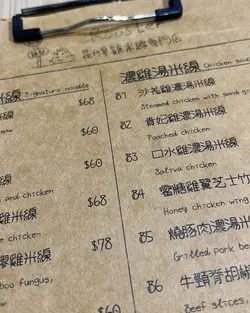 花竹里雞米線專門店
米線 Signature noodle
米線 $68
$60
雞米線 $68
$60
and chicken
雞米線 $68
chicken
雞米線 $78
boo fungus,
$60
濃雞湯米線
B1
Steamed chicken with sand g
B2 貴妃雞濃湯米線
Poached chicken
B3 口水雞濃湯米線
Saliva chicken
B4 蜜糖雞翼芝士竹
Honey chicken wing
B5 燒豚肉濃湯米
Grilled pork be
B6 牛頸脊胡椒
Beef slices,